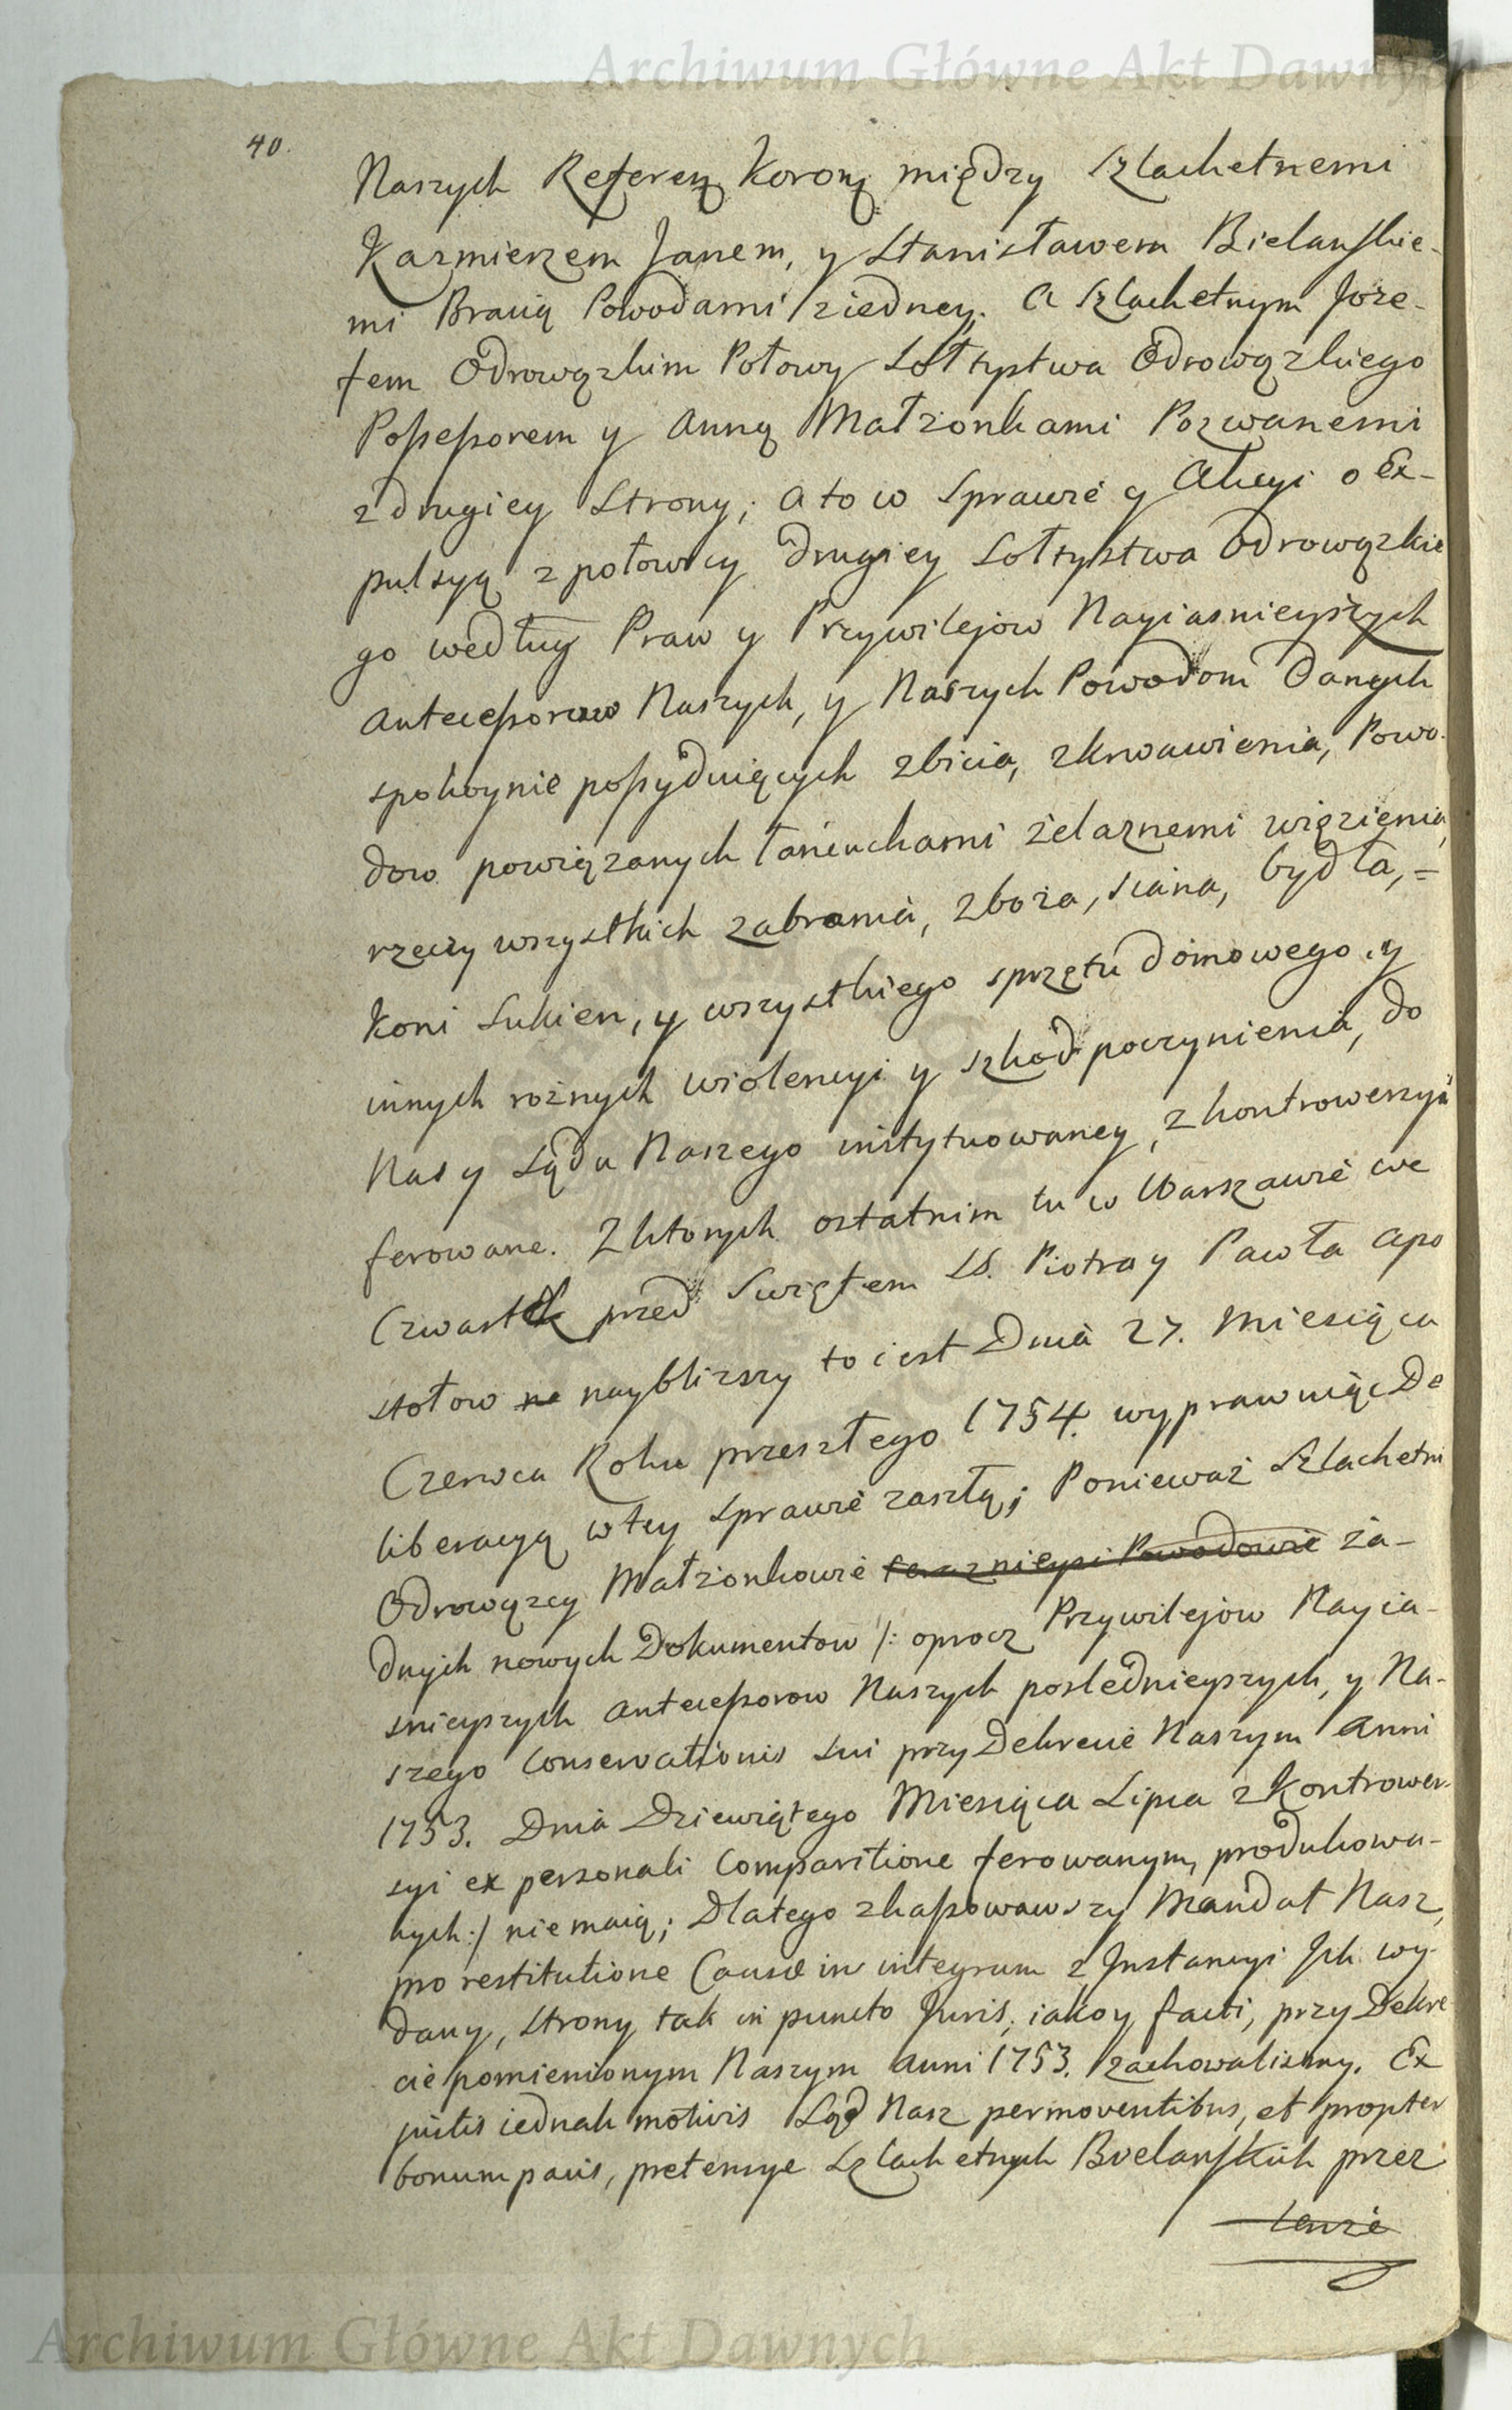 Archiwum Główne Akt Dawnych
40.
Naszych Referen Koron między Szlachetnemi
Kazmierzem Janem, y Stanisławem Bielanskie-
mi Bracią Powodami ziedney. A Szlachetnym Joze-
fem Odrowązkim Połowy Sołtystwa Odrowązkiego
Possessorem y Anną Małzonkami Pozwanemi
z drugiey Strony; a to w Sprawie y Akcyi o Ex-
pulsyą z połowicy drugiey Sołtystwa Odrowązkie
go według Praw y Przywilejow Nayiasnieyszych
Antecessorow Naszych, y Naszych Powodom Danych
spokoynie possyduiących zbicia, zkrwawienia, Powo-
dow powiązanych łancuchami żelaznemi więzienia,
rzeczy wszystkich zabrania, zboża, siana, bydła, =
Koni Sukien, y wszystkiego sprzętu domowego y
innych rożnych wiolencyi y szkod poczynienia, do
Nas y Sądu Naszego instytuowaney, z kontrowersyi
ferowane. Z ktorych ostatnim tu w Warszawie we
Czwartek przed Swiętem SS. Piotra y Pawła Apo
stołow na naybliższy to iest Dnia 27. Miesiąca
Czerwca Roku przeszłego 1754. wyprawuiąc De
liberacyą w tey Sprawie zaszłą; Ponieważ Szlachetni
Odrowązcy Małżonkowie teraznieysi Powodowie ża-
dnych nowych Dokumentow /: oprocz Przywilejow Nayia-
snieyszych Antecessorow Naszych poslednieyszych, y Na-
szego Conservationis sui przy Dekrecie Naszym Anni
1753. Dnia Dziewiątego Miesiąca Lipca z Kontrower-
syi ex personali Comparitione ferowanym, produkowa-
nych :/ nie maią; Dlatego zkassowawszy Mandat Nasz,
pro restitutione Causæ in integrum z Instancyi Ich wy-
dany, Strony tak in puncto Juris, iako y facti, przy Dekre
cie pomienionym Naszym Anni 1753. zachowalismy. Ex
justis iednak motivis Sąd Nasz permoventibus, et propter
bonum pacis, pretensye Szlachetnych Bielanskich przez
Archiwum Główne Akt Dawnych